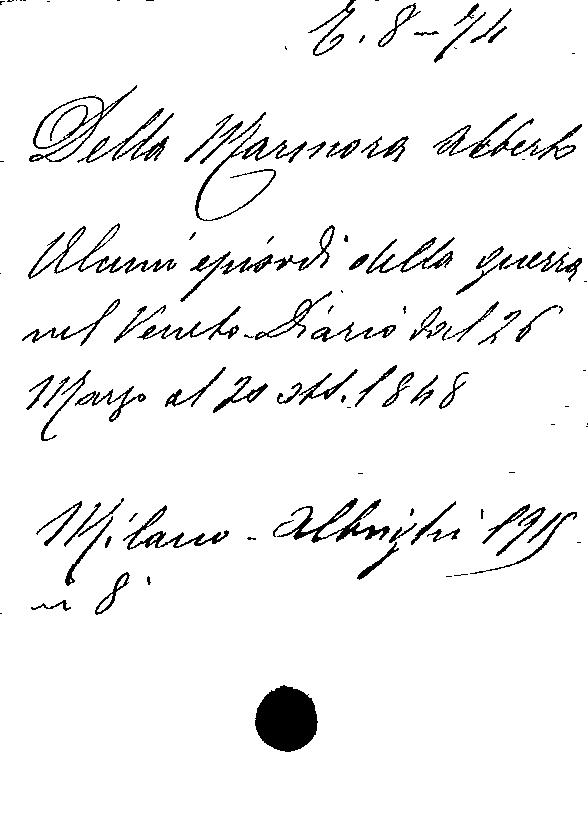 E. 8-74
Della Marmora Alberto
Alcuni episodi della guerra
nel Veneto - Diario dal 26
Marzo al 20 ott. 1848
Milano - Albrighi 1915
in 8°